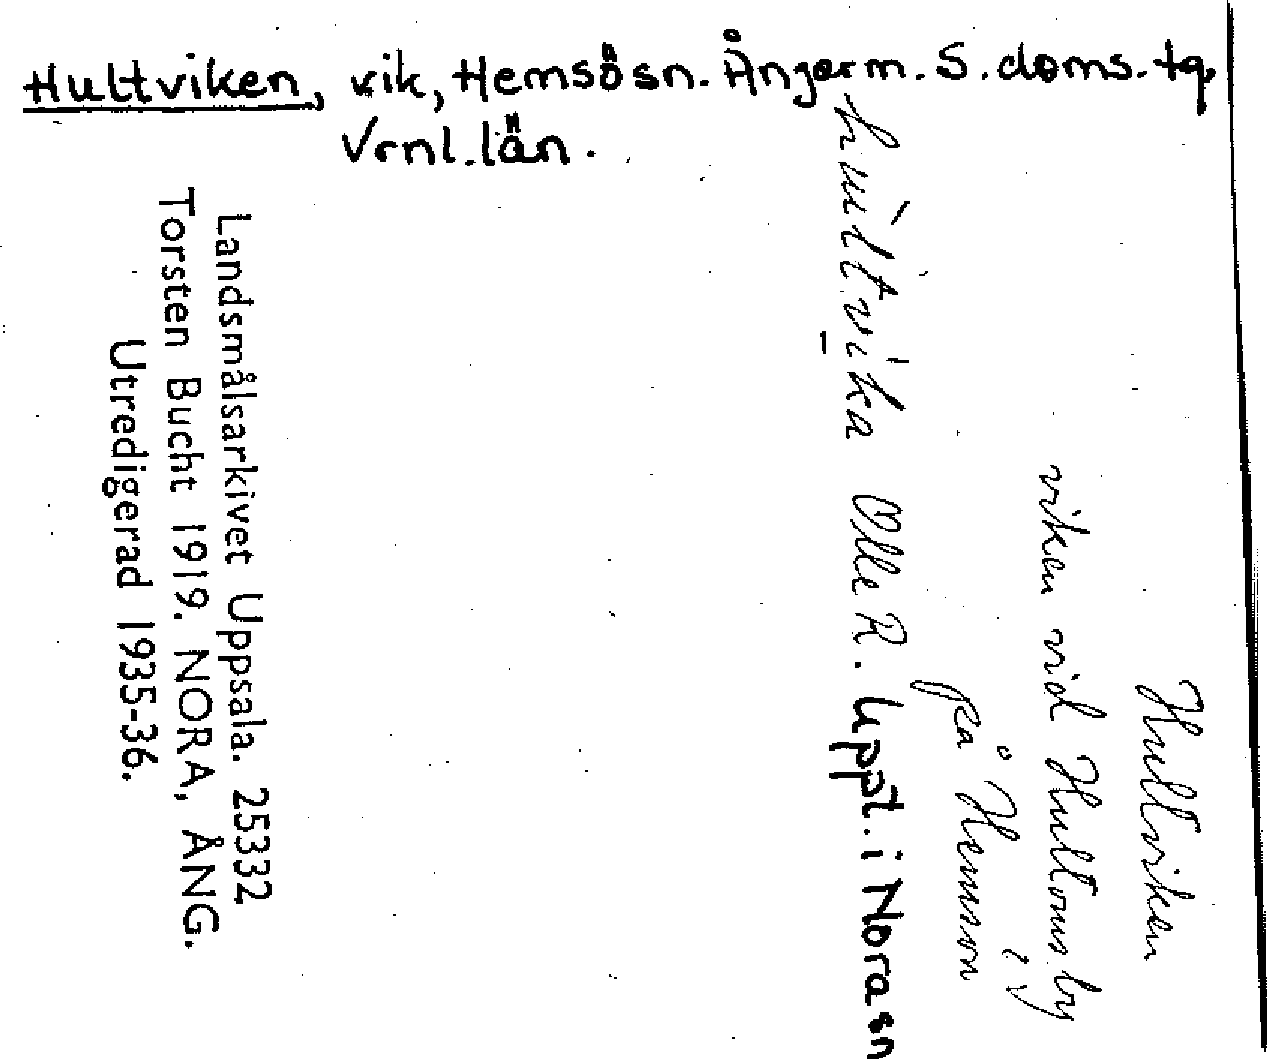 Hultviken, vik, Hemsö sn. Ångerm. S. doms. tg,
Vrnl. län.
Hultviken
viken vid Hultoms by
på Hemsön
hultvika Olle R. Uppt. i Nora sn
Landsmålsarkivet Uppsala. 25332
Torsten Bucht 1919. NORA, ÅNG.
Utredigerad 1935-36.